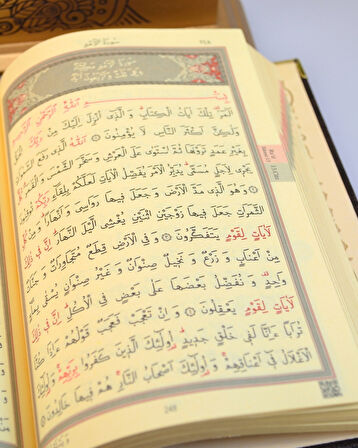 سورة الرعد
بِسْمِ اللهِ الرَّحْمٰنِ الرَّحِيمِ
الٓمٓرٰ تِلْكَ اٰيَاتُ الْكِتَابِ وَالَّذِٓي اُنْزِلَ اِلَيْكَ مِنْ رَبِّكَ الْحَقُّ
وَلٰكِنَّ اَكْثَرَ النَّاسِ لَا يُؤْمِنُونَ ﴿١﴾ اَللهُ الَّذِي رَفَعَ السَّمٰوَاتِ
بِغَيْرِ عَمَدٍ تَرَوْنَهَا ثُمَّ اسْتَوٰى عَلَى الْعَرْشِ وَسَخَّرَ الشَّمْسَ وَالْقَمَرَ كُلٌّ
يَجْرِي لِاَجَلٍ مُسَمًّى يُدَبِّرُ الْاَمْرَ يُفَصِّلُ الْاٰيَاتِ لَعَلَّكُمْ بِلِقَٓاءِ رَبِّكُمْ تُوقِنُونَ
﴿٢﴾ وَهُوَ الَّذِي مَدَّ الْاَرْضَ وَجَعَلَ فِيهَا رَوَاسِيَ وَاَنْهَارًا وَمِنْ كُلِّ
الثَّمَرَاتِ جَعَلَ فِيهَا زَوْجَيْنِ اثْنَيْنِ يُغْشِي الَّيْلَ النَّهَارَ اِنَّ فِي ذٰلِكَ
لَاٰيَاتٍ لِقَوْمٍ يَتَفَكَّرُونَ ﴿٣﴾ وَفِي الْاَرْضِ قِطَعٌ مُتَجَاوِرَاتٌ وَجَنَّاتٌ
مِنْ اَعْنَابٍ وَزَرْعٌ وَنَخِيلٌ صِنْوَانٌ وَغَيْرُ صِنْوَانٍ يُسْقٰى بِمَٓاءٍ
وَاحِدٍ وَنُفَضِّلُ بَعْضَهَا عَلٰى بَعْضٍ فِي الْاُكُلِ اِنَّ فِي ذٰلِكَ
لَاٰيَاتٍ لِقَوْمٍ يَعْقِلُونَ ﴿٤﴾ وَاِنْ تَعْجَبْ فَعَجَبٌ قَوْلُهُمْ ءَاِذَا كُنَّا
تُرَابًا ءَاِنَّا لَفِي خَلْقٍ جَدِيدٍ اُو۬لٰٓئِكَ الَّذِينَ كَفَرُوا بِرَبِّهِمْ وَاُو۬لٰٓئِكَ
الْاَغْلَالُ فِٓي اَعْنَاقِهِمْ وَاُو۬لٰٓئِكَ اَصْحَابُ النَّارِ هُمْ فِيهَا خَالِدُونَ
248